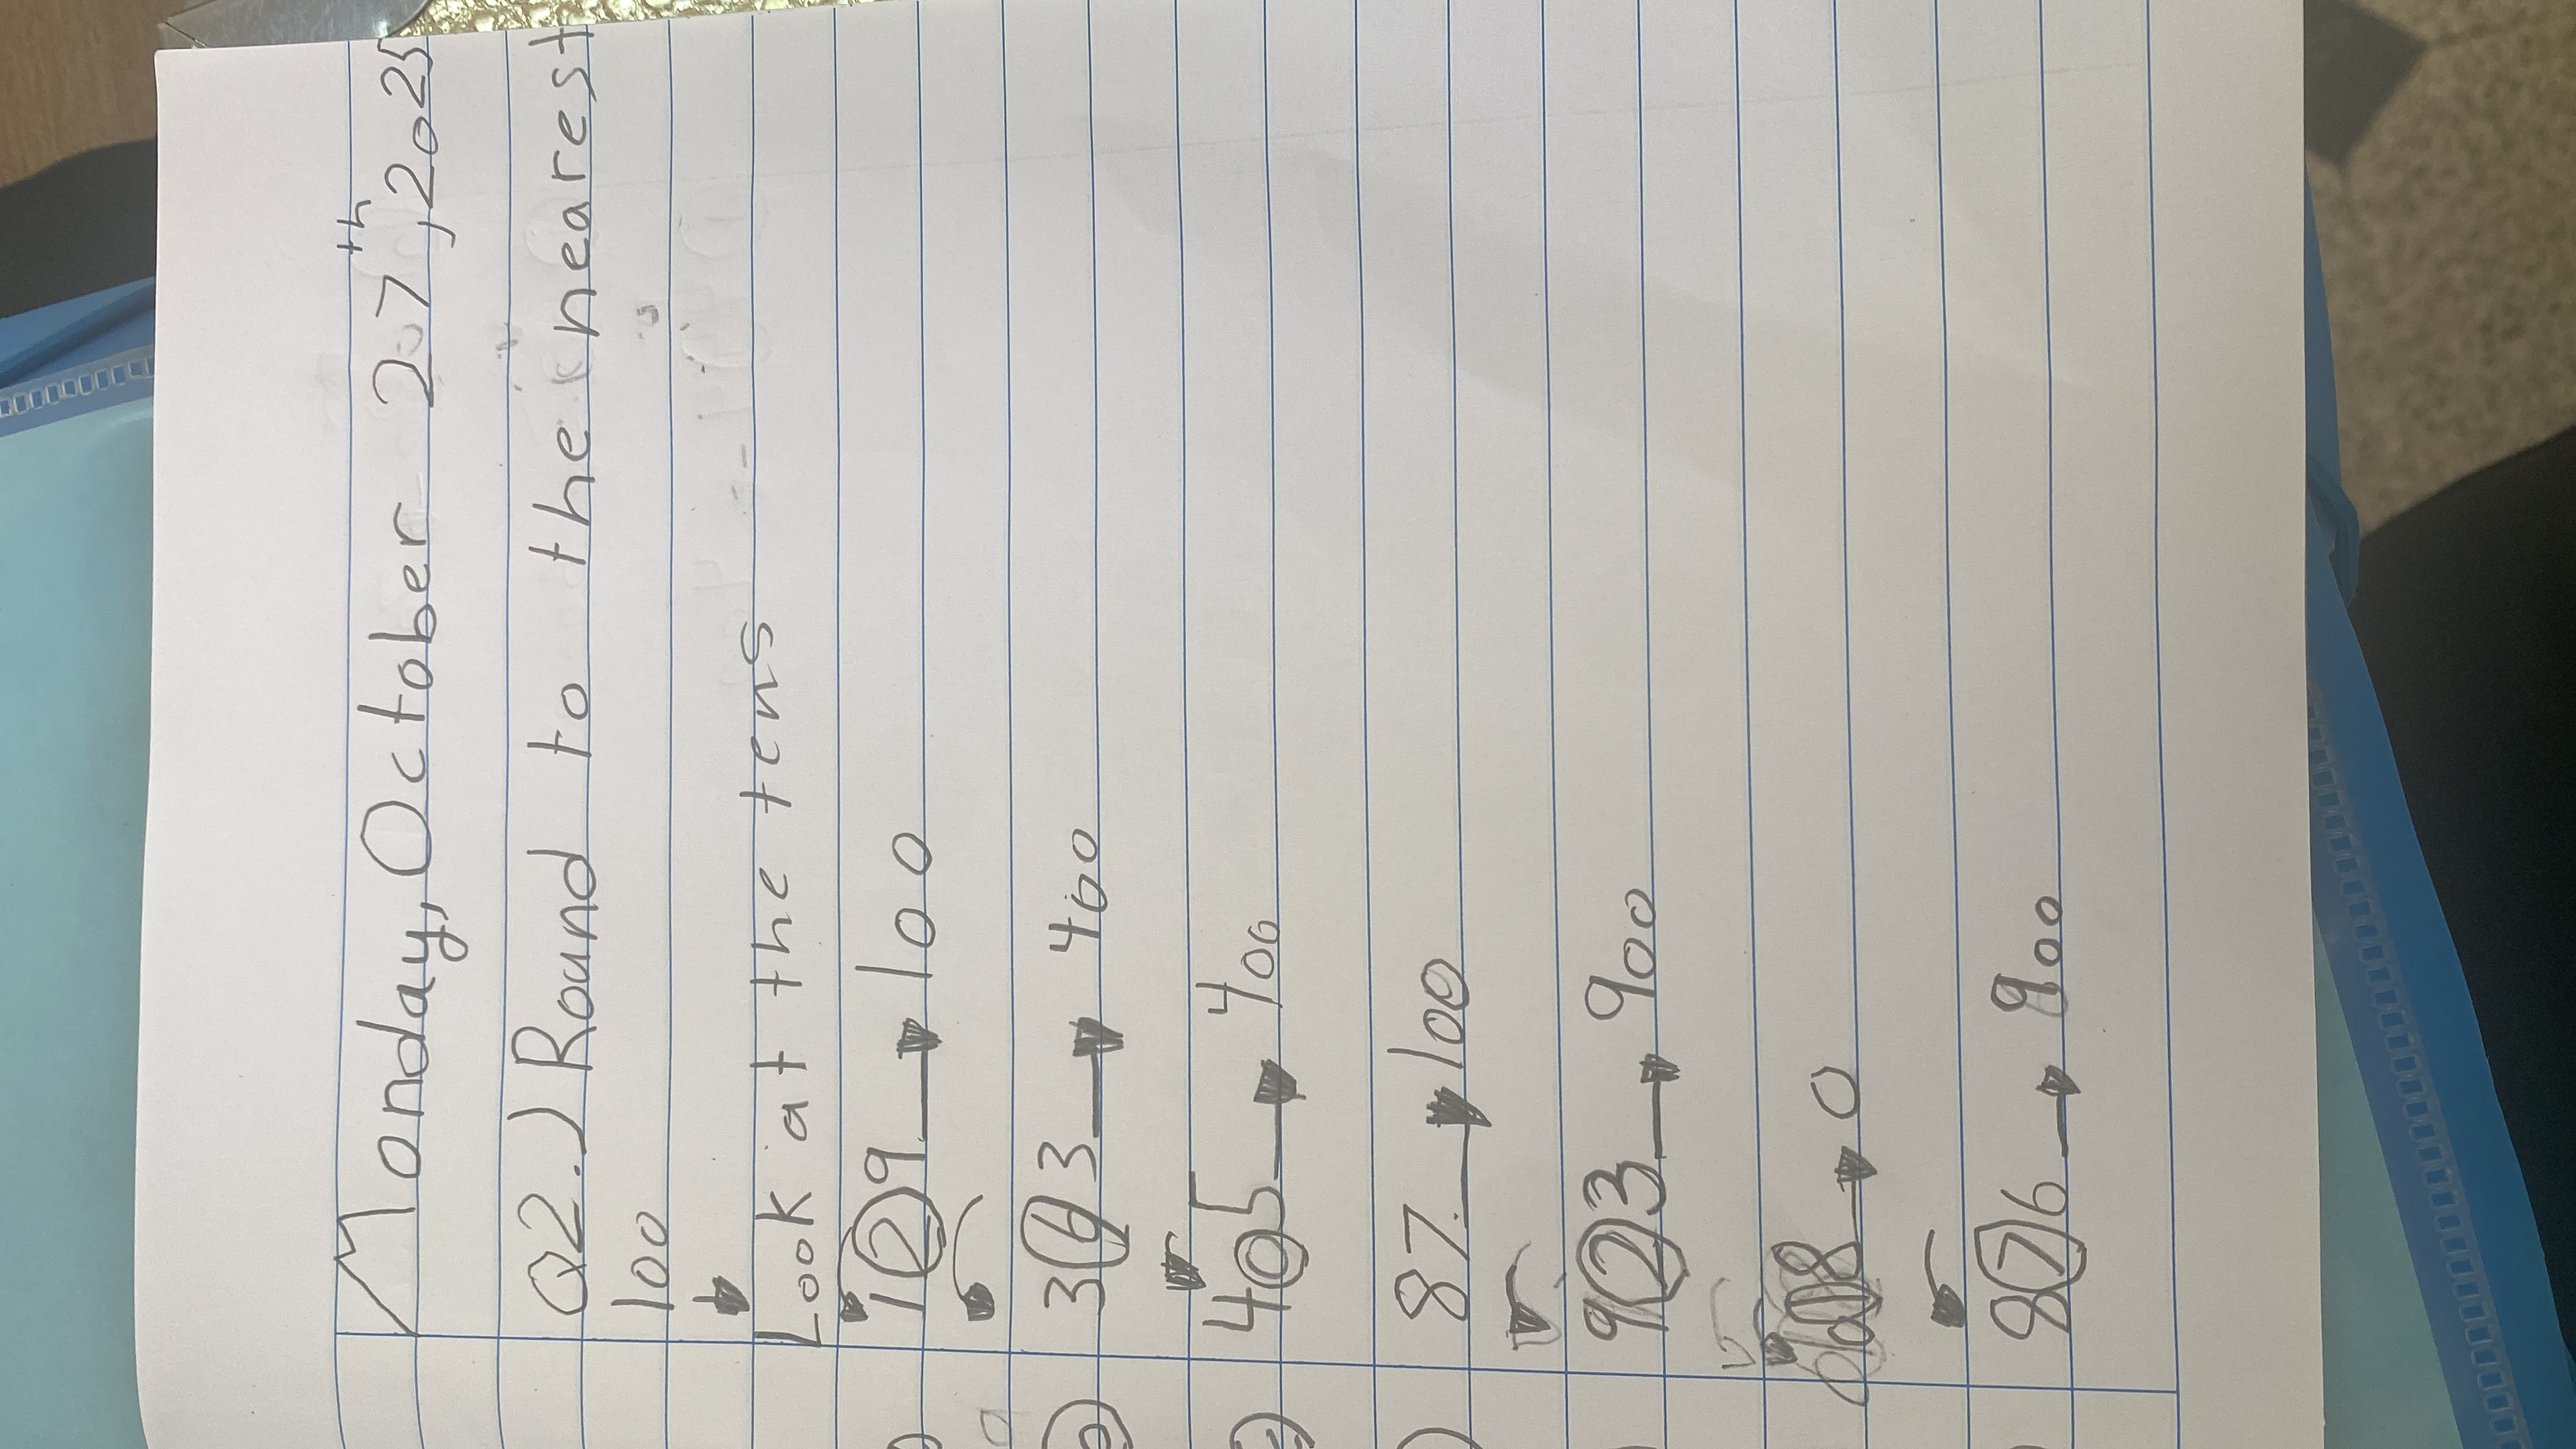 Monday, October 27th, 2025
Q2.) Round to the nearest
100
Look at the tens
129 → 100
363 → 400
405 → 400
87 → 100
923 → 900
18 → 0
876 → 900